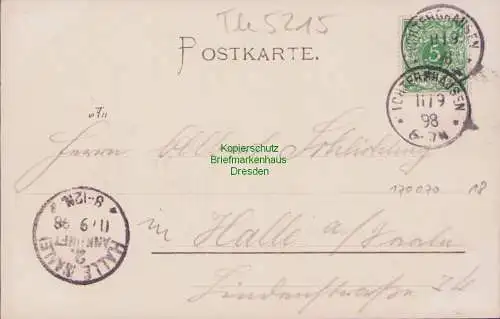 Th 5215
POSTKARTE.
ICHTERSHAUSEN
11/9
98
5
ICHTERSHAUSEN
11/9
98
6-7N
Kopierschutz
Briefmarkenhaus
Dresden
Herrn
170070 18
HALLE (SAALE)
ANKUNFT
11/9 98
8-12N.
in Halle a/Saale
Lindenstraße